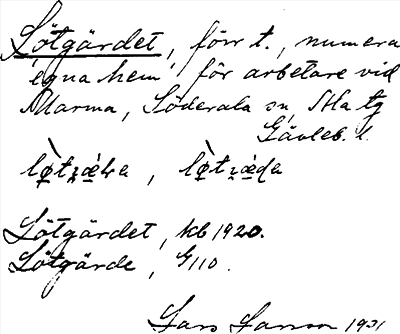 Lötgärdet, förr t., numera
"egna hem" för arbetare vid
Marma, Söderala sn, Ala tg
Gävleb. l.
Lötgärdet, kb 1920.
Lötgärde, G110.
Lars Larsson 1931